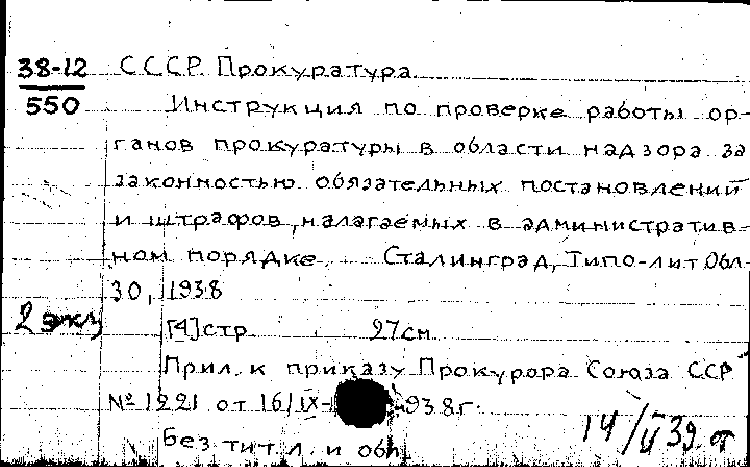 38-12 СССР. Прокуратура
550 Инструкция по проверке работы ор-
ганов прокуратуры в области надзора за
законностью обязательных постановлений
и штрафов, налагаемых в административ-
ном порядке. Сталинград, Типо-лит. Обл-
30, 1938
2 экз
[4] стр 27 см.
Прил. к приказу Прокурора Союза ССР
№ 1221 от 16/IX- 938г.
Без тит. л. и обл
14/ 39